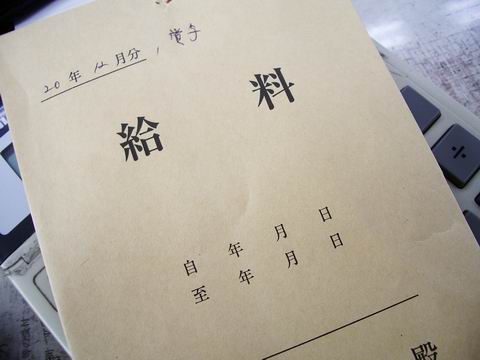 20年 12月分,賞与
給料
自 年 月 日
至 年 月 日
殿
÷